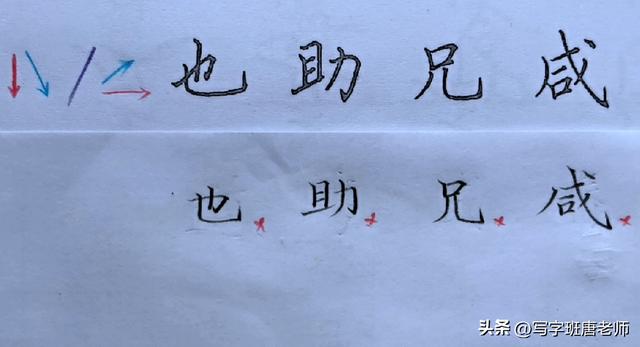 也 助 兄 咸
也 助 兄 咸
头条 @写字班唐老师